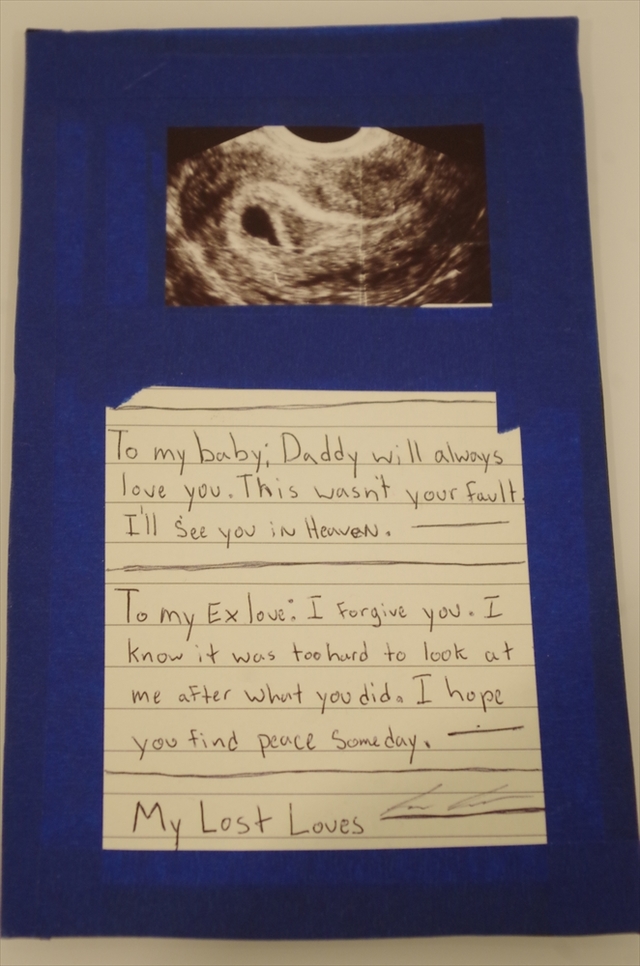 To my baby; Daddy will always
love you. This wasn't your fault.
I'll see you in Heaven.
To my Ex love: I forgive you. I
know it was too hard to look at
me after what you did. I hope
you find peace someday.
My Lost Loves